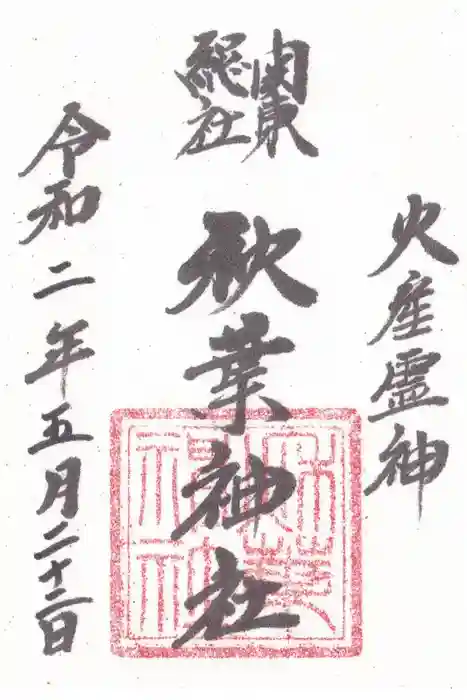 火産霊神
関東
総社
秋葉神社
令和二年五月二十二日